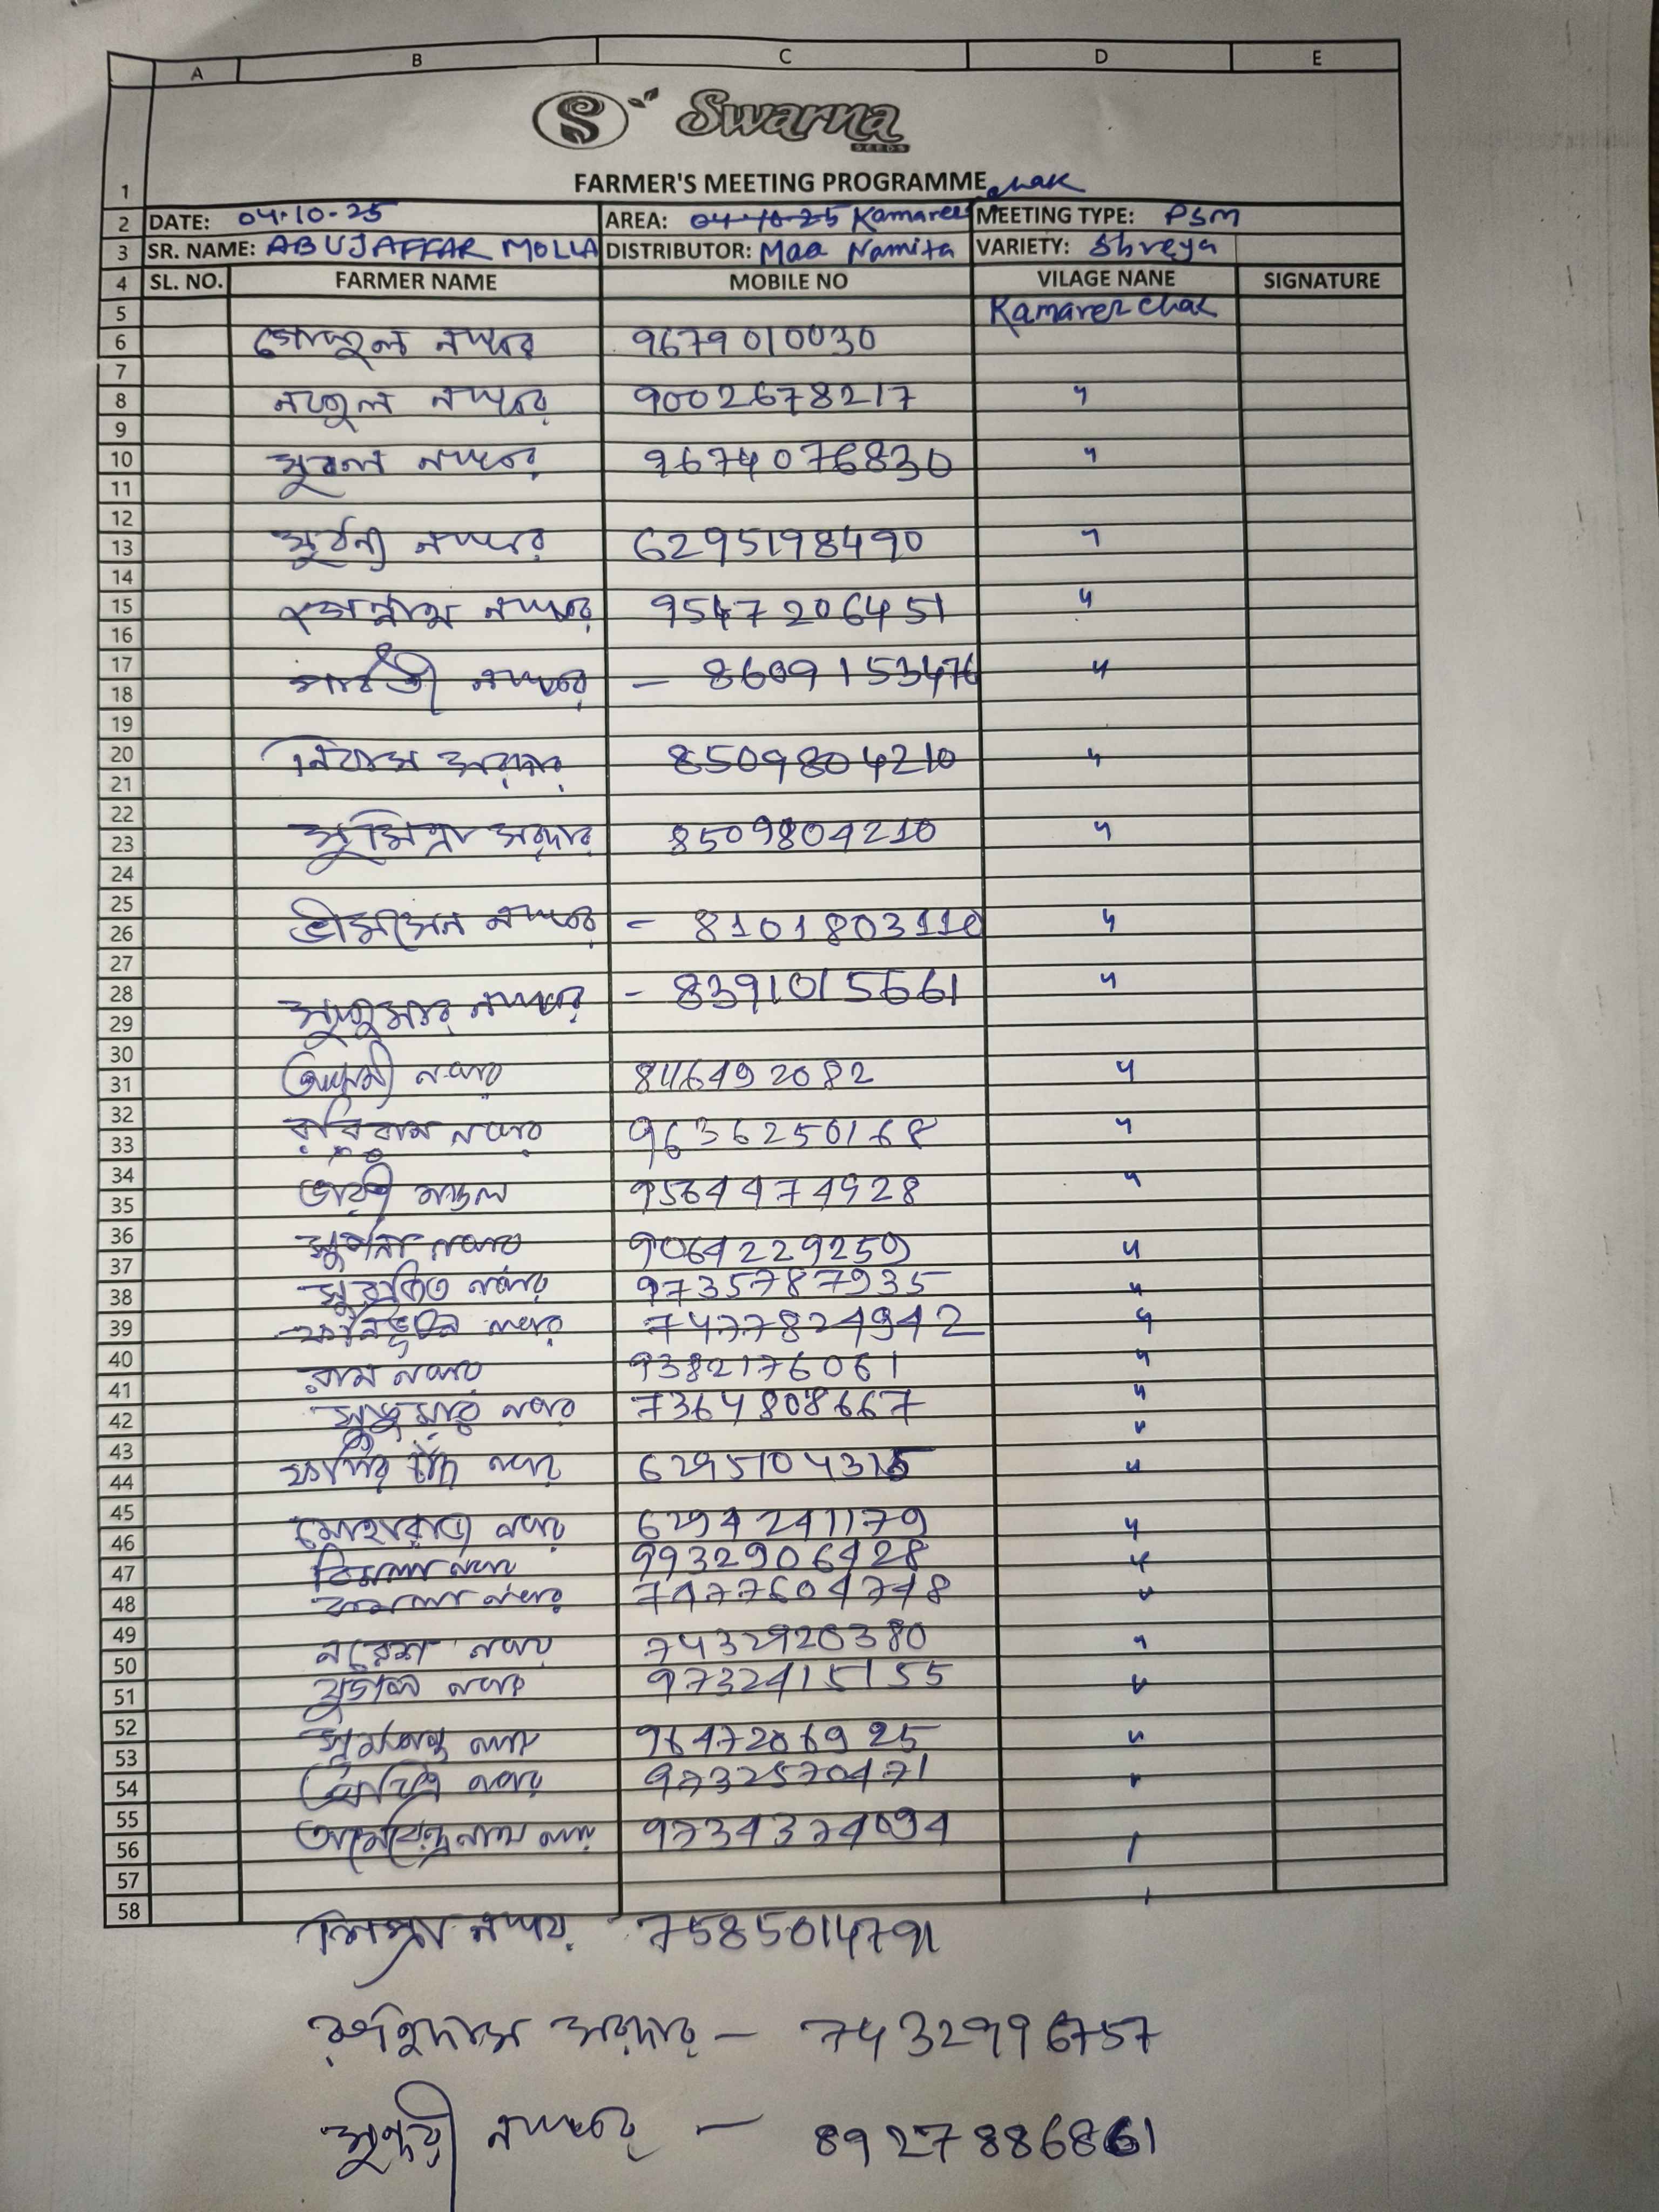 A B C D E
S Swarna
SEEDS
1 FARMER'S MEETING PROGRAMME chak
2 DATE: 04-10-25 AREA: 04-10-25 Kamarer MEETING TYPE: PSM
3 SR. NAME: ABUJAFFAR MOLLA DISTRIBUTOR: Maa Namita VARIETY: Shreya
4 SL. NO. FARMER NAME MOBILE NO VILAGE NANE SIGNATURE
5 Kamarer chak
6 গোকুল নস্কর 9679010030
7
8 নকুল নস্কর 9002678217 "
9
10 সুবল নস্কর 9674076830 "
11
12
13 নস্কর 6295198490 "
14
15 নস্কর 9547206451 "
16
17
18 পার্বতী নস্কর - 8609153476 "
19
20 নিবাস সরদার 8509804210 "
21
22
23 সুমিত্রা সরদার 8509804210 "
24
25
26 ভীমসেন নস্কর - 8101803110 "
27
28 সুকুমার নস্কর - 8391015661 "
29
30
31 নস্কর 8116492082 "
32
33 নস্কর 9636250168 "
34
35 মন্ডল 9564474928 "
36
37 নস্কর 9064229259 "
38 নস্কর 9735787935 "
39 নস্কর 7477824942 "
40 রাম নস্কর 9382176061 "
41
42 সুকুমার নস্কর 7364808667 "
43 "
44 ফকির চাঁদ নস্কর "
45
46 নস্কর 6294241179 "
47 বিমলা নস্কর 9932906428 "
48 কমলা নস্কর 7477604748 "
49
50 নরেশ নস্কর 7432920380 "
51 নস্কর 9732415155 "
52
53 নস্কর 9647206925 "
54 নস্কর 9732570471 "
55
56 নস্কর 9734374094
57
58
নস্কর 7585014791
সরদার - 7432996757
সুন্দরী নস্কর - 8927886861